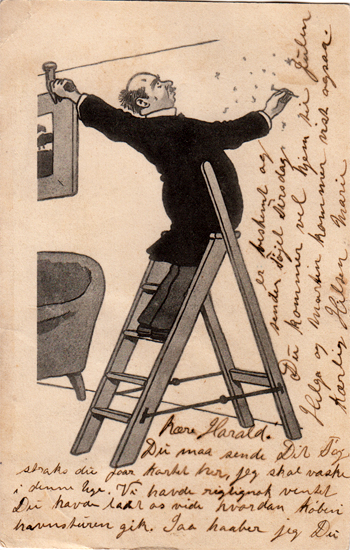 Kære Harald.
Du maa sende Dit Tøj
straks du faar kortet her, jeg skal vaske
i denne Uge. Vi havde rigtignok ventet
Du havde ladet os vide hvordan Køben
havnsturen gik. Saa haaber jeg Du
er bestemt og
sender Tøjet Tirsdag
Du kommer vel hjem til Julen
Helga og Martin kommer vist ogsaa
Kærlig Hilsen Marie